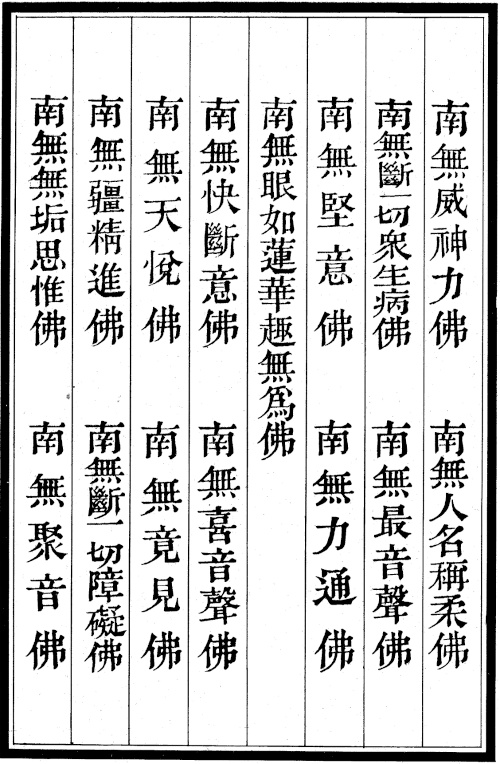 南無威神力佛　南無人名稱柔佛
南無斷一切衆生病佛　南無最音聲佛
南無堅意佛　南無力通佛
南無眼如蓮華趣無爲佛
南無快斷意佛　南無喜音聲佛
南無天悅佛　南無竟見佛
南無無疆精進佛　南無斷一切障礙佛
南無無垢思惟佛　南無聚音佛